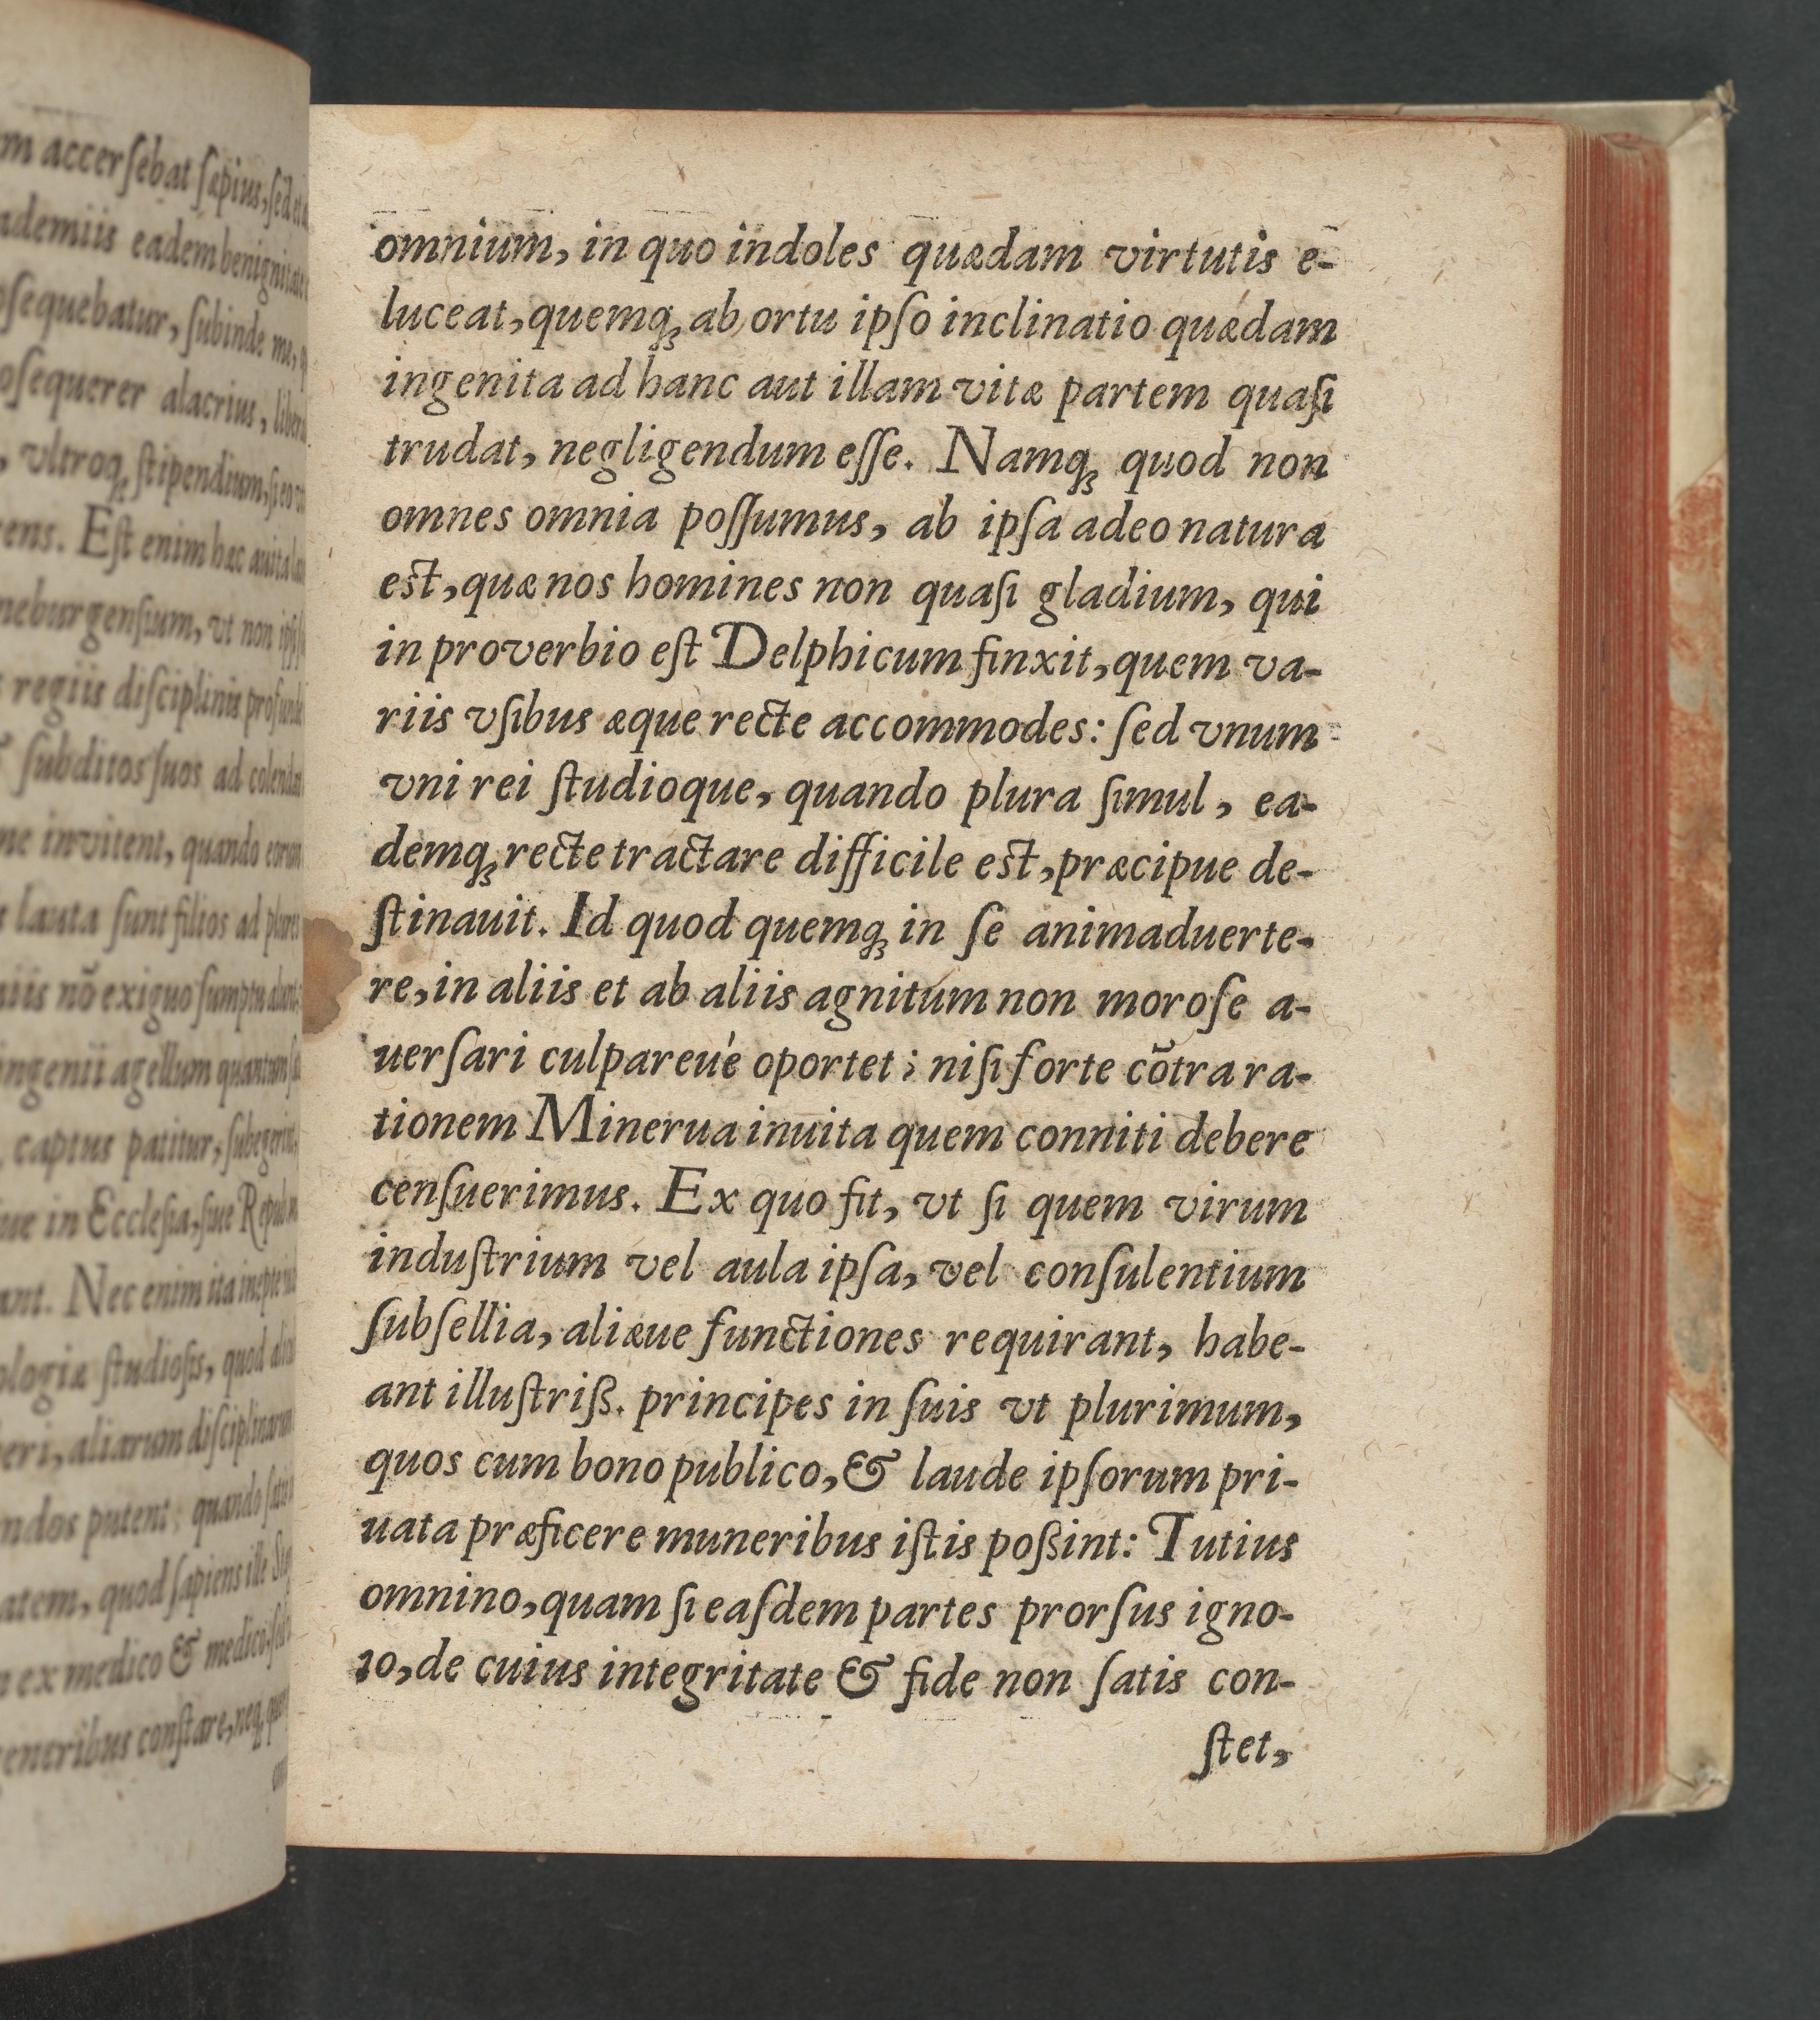 m accersebat sæpius, sed et
ademiis eadem benignitate
osequebatur, subinde me,
osequerer alacrius, libera
, vltroq́ꝫ stipendium, si eo
ens. Est enim hæc auita
neburgensium, vt non
regiis disciplinis
subditos suos ad colenda
ne invitent, quando eorum
lauta sunt filios ad plures
niis nõ exiguo sumptu
ingenii agellum quantum
captus patitur, subegerint,
ue in Ecclesia, siue Repub
ant. Nec enim ita inepte
ologiæ studiosis, quod
eri, aliarum disciplinarum
ndos putent; quando
atem, quod sapiens ille
ex medico & medico, sed
entribus constare, neq;
omnium, in quo indoles quædam virtutis e-
luceat, quemqꝫ ab ortu ipſo inclinatio quædam
ingenita ad hanc aut illam vitæ partem quaſi
trudat, negligendum eſſe. Namqꝫ quod non
omnes omnia poſſumus, ab ipſa adeo natura
est, quæ nos homines non quaſi gladium, qui
in proverbio eſt Delphicum finxit, quem va-
riis vſibus æque recte accommodes: ſed vnum
vni rei ſtudioque, quando plura ſimul, ea-
demqꝫ recte tractare difficile est, præcipue de-
ſtinauit. Id quod quemqꝫ in ſe animaduerte-
re, in aliis et ab aliis agnitum non moroſe a-
uerſari culpareué oportet; niſi forte cõtra ra-
tionem Minerua inuita quem conniti debere
cenſuerimus. Ex quo fit, vt ſi quem virum
induſtrium vel aula ipſa, vel conſulentium
ſubſellia, aliæue functiones requirant, habe-
ant illuſtriß. principes in ſuis vt plurimum,
quos cum bono publico, & laude ipſorum pri-
uata præficere muneribus iſtis poßint: Tutius
omnino, quam ſi eaſdem partes prorſus igno-
to, de cuius integritate & fide non ſatis con-
ſtet,